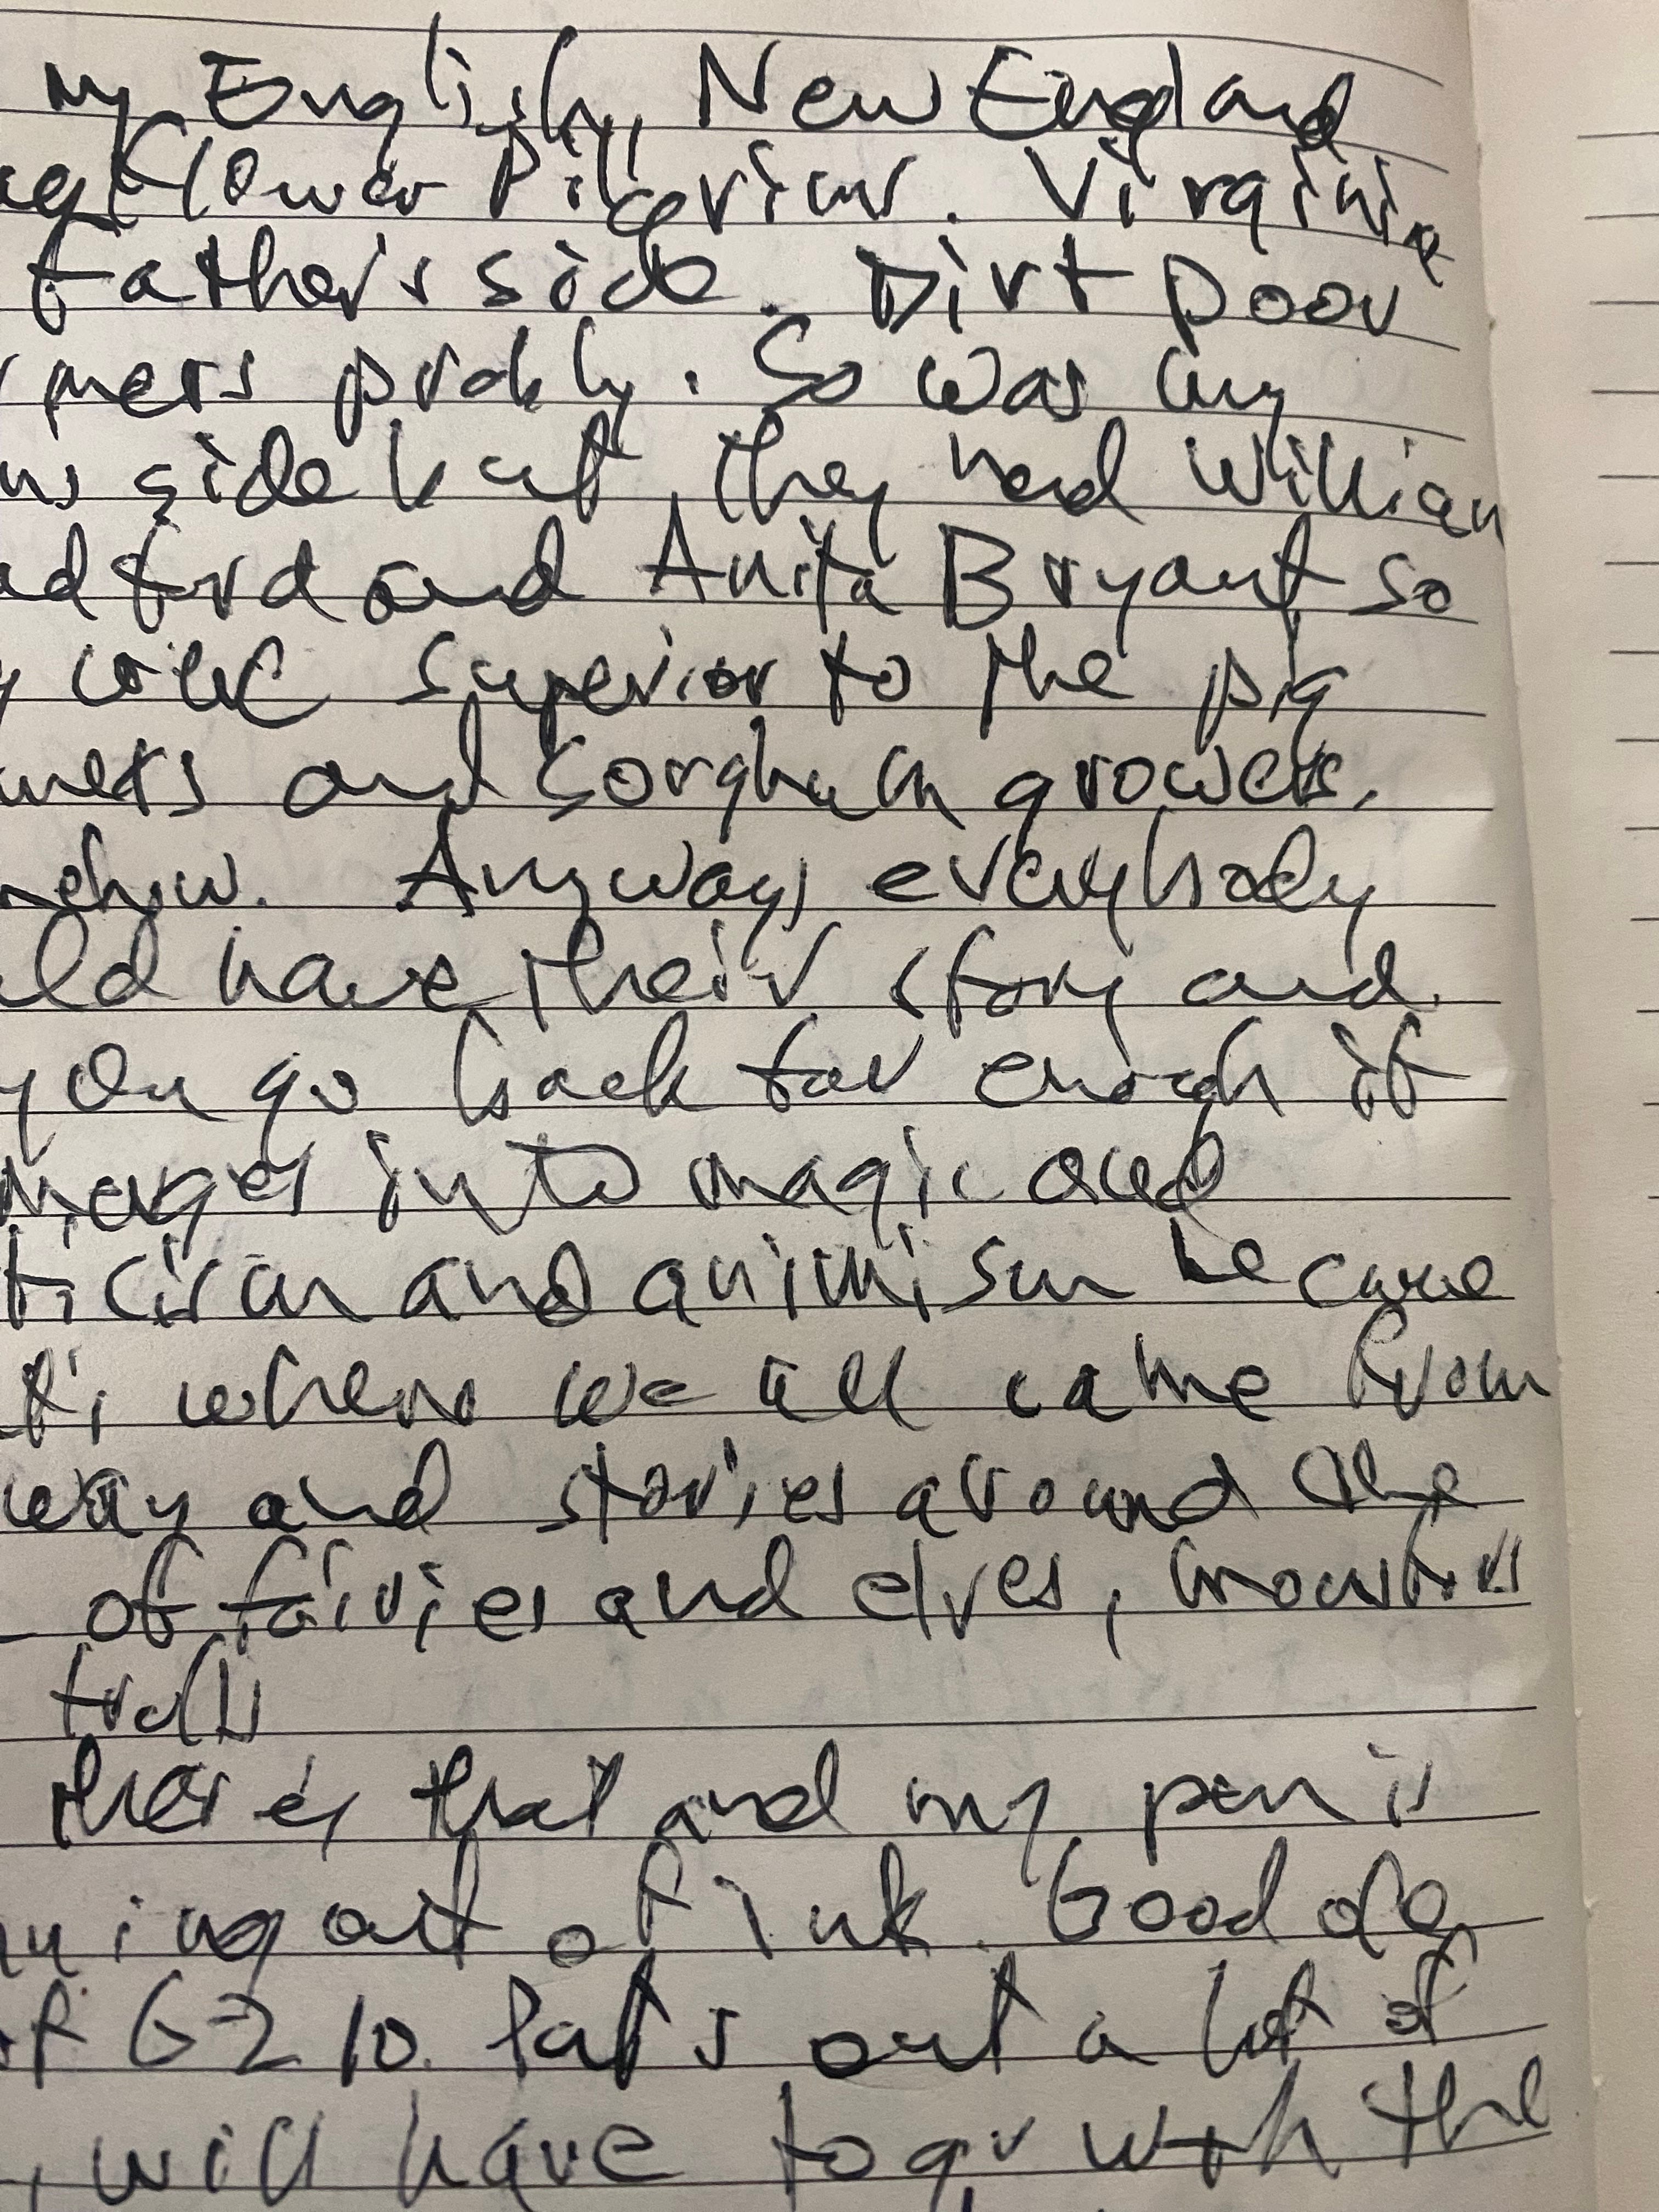 my English, New England
ayflower Pilgrims. Virginia
Father's side. Dirt poor
rmers probly. So was my
ms side but they had William
adford and Anita Bryant so
y were superior to the pig
mers and sorghum growers.
mehow. Anyway, everybody
uld have their story and
you go back far enough it
merges into magic and
ticism and animism because
t's where we all came from
way and stories around the
of fairies and elves, monsters
trolls
there's that and my pen is
nning out of ink. Good ole
G2 10. Puts out a lot of
, will have to go with the